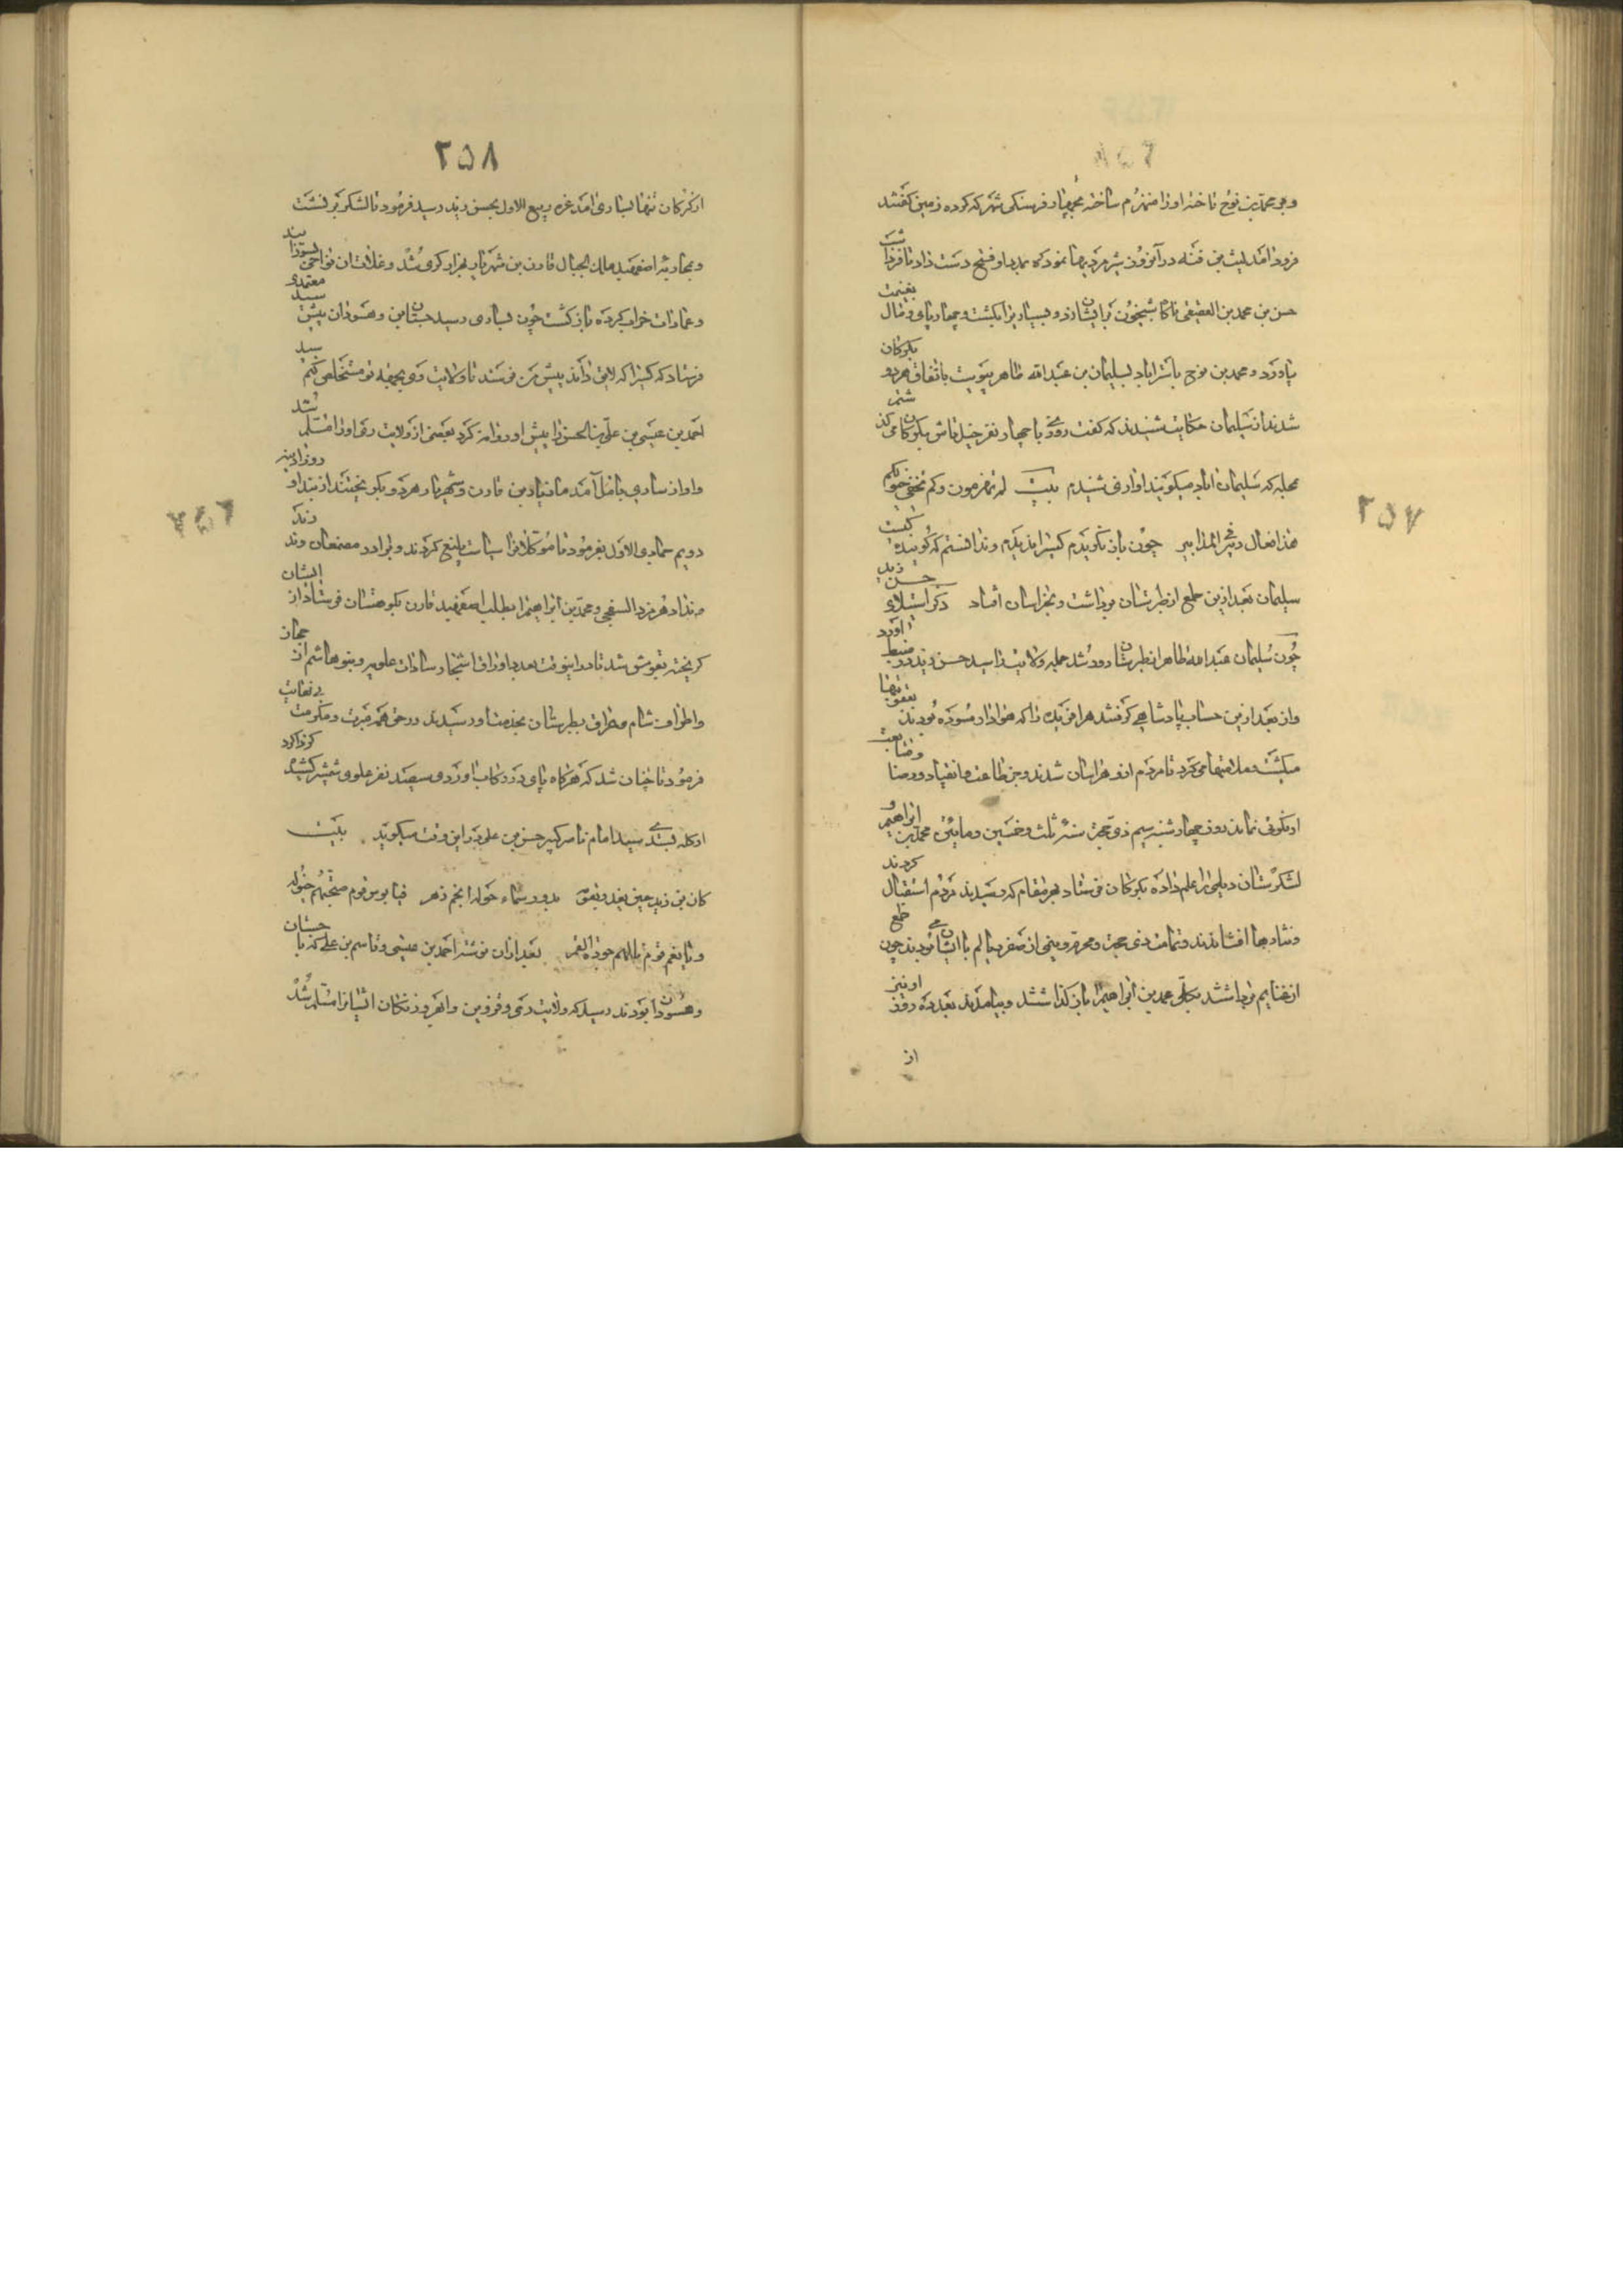 ۲۵۷
و بر محمد بن نوح تاخته او را منهزم ساخته بچهار فرسنگی شهر که کرده زمین کفتند
فرود آمد لیث بن فنه در آن روز شیر مردیها نمود که بدید او فتح دست داد تا فردا شب
حسن بن محمد بن العقیقی ناگاه شبیخون بر ایشان زد و بسیار را بکشت و چهار پای و مال بغنیمت
بیاورد و محمد بن نوح باستراباد بسلیمان بن عبدالله طاهر پیوست باتفاق هر دو بکرکان
شدند از سلیمان حکایت شنیدند که گفت روزی با چهار نفر خیلتاش بکرکان می
محله که سلیمان اباد میکویند اوازی شنیدم بیت
هذا فعال چون باز نکریدم کسی را ندیدم و ندانستم که گوینده کیست
سلیمان بعد ازین طمع از طبرستان برداشت و بخراسان افتاد ذکر استیلای حسن زید
چون سلیمان عبدالله طاهر از طبرستان دور شد جمله ولایت را سید حسن زید در ضبط آورد
و از بعد ازین حساب پادشاهی کرفتند هر آفریده را که هوادار مسوده بودند
میکشت و ملامتها می کرد تا مردم از او هراسان شدند و جز طاعت و انقیاد و رضا
او نکوئی نماند روز چهارشنبه سیم ذی حجه سنه ثلث و خمسین و مایتین محمد بن ابراهیم و
لشکرستان دیلمی را علم داده بکرکان فرستاد بهر مقام که رسیدند مردم استقبال کردند
و نثارها افشاندند و تمامت ذی حجه و محرم و نیمی از صفر دیالم با ایشان می بودند چون طمع
از غنایم برداشتند بکلی محمد بن ابراهیم را باز کذاشتند و بیامدند بعد ده روز او نیز
از
۲۵۸
از کرکان تنها بساری آمد غره ربیع الاول بحسن زید رسید فرمود تا لشکر بر نشست
و بمحاربه اصفهبد ملک الجبال قارن بن شهریار بهزار کری شد و غلات آن نواحی بسوزانید
و عمارات خراب کرده باز کشت چون بساری رسید جستان بن وهسودان پیش سید معتمدی
فرستاد که کسی را که لایق داند پیش من فرستد تا ولایت ری بجهه تو مستخلص کنم سید
احمد بن عیسی بن علی بن الحسن را پیش او روانه کرد بعضی از ولایت ری او را مسلم شد
و او از ساری بامل آمد مازیار بن قارن و شهریار هر دو بکریختند از بند او روز آدینه
دویم جمادی الاول بفرمود تا موکلانرا سیاست بلیغ کردند و برادر مصمغان وند
هرمزد السفجی و محمد بن ابراهیم را بطلب اصفهبد قارن بکوهستان فرستاد از ایشان
کریخته بقومش شد تا بعدد اوراق اشجار سادات علویه و بنو هاشم از حجاز
و اطراف شام و عراق بطبرستان بخدمت او رسیدند در حق همه مبرت و مکرمت بی نهایت
فرمود تا چنان شد که هرکاه پای در رکاب آوردی سیصد نفر علوی شمشیر کشیده کرد او در
کله بستندی سید امام ناصر کبیر حسن بن علی در این وقت میکوید بیت
کان بن زید حین یغدو بقومه بدور سماء حوله انجم زهر
و یا نعم قوم بعد از آن نوشته احمد بن عیسی و قاسم بن علی که با جستان
وهسودان بودند رسید که ولایت ری و قزوین و ابهر و زنکان ایشانرا مسلم شد